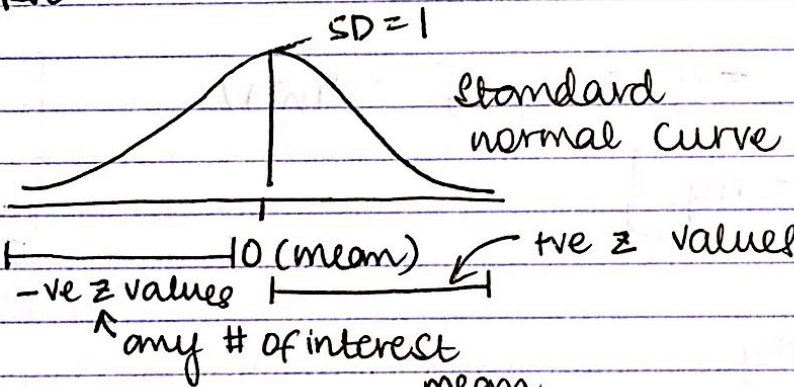 SD = 1
Standard
normal curve
0 (mean)
+ve z values
-ve z values
any # of interest
mean